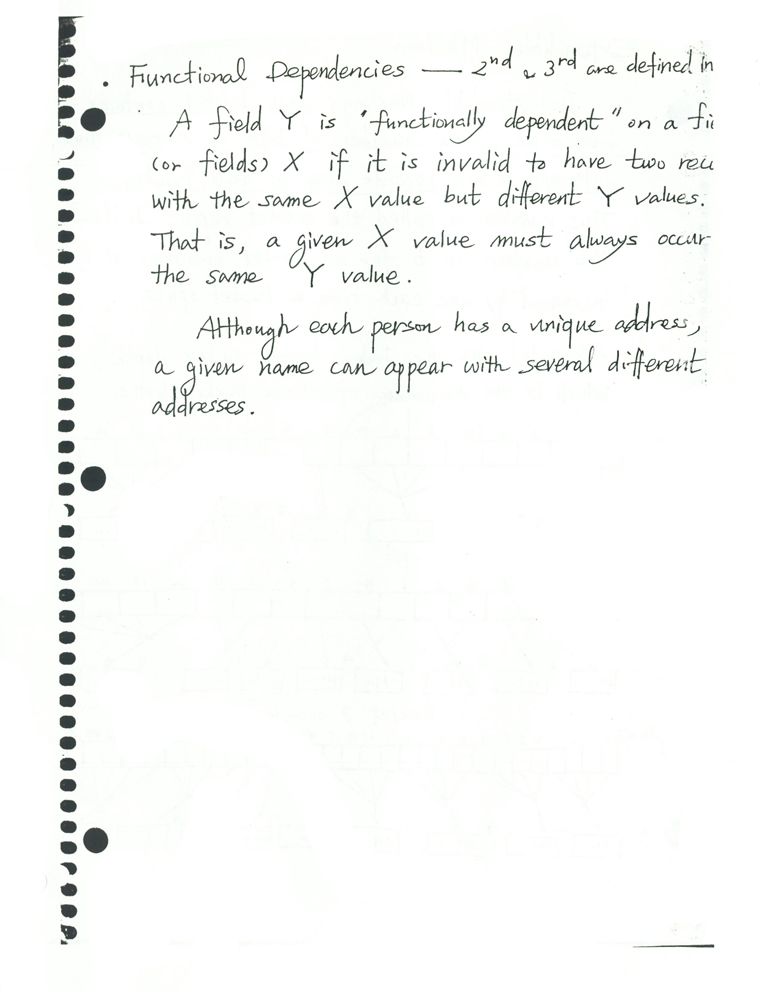 . Functional Dependencies — 2nd & 3rd are defined in
A field Y is "functionally dependent" on a
(or fields) X if it is invalid to have two
with the same X value but different Y values.
That is, a given X value must always occur
the same Y value.
Although each person has a unique address,
a given name can appear with several different
addresses.